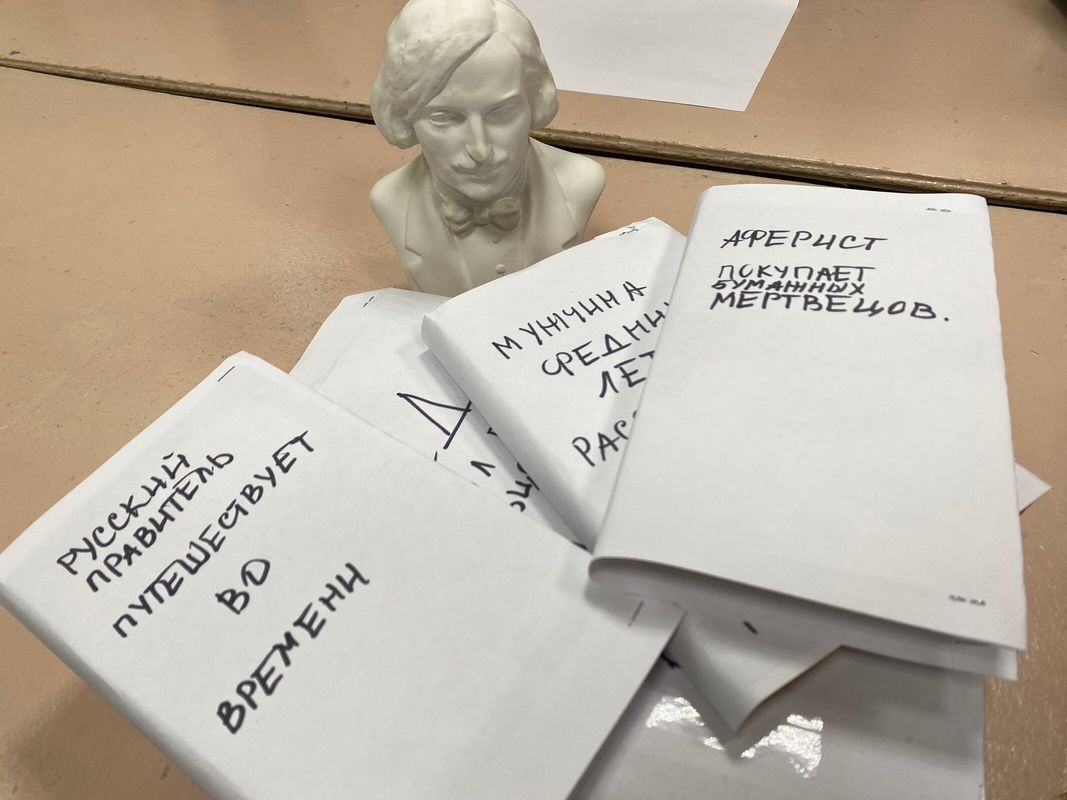 АФЕРИСТ
ПОКУПАЕТ
БУМАЖНЫХ
МЕРТВЕЦОВ.
МУЖЧИНА
СРЕДНИ
ЛЕТ
РАС
РУССКИЙ
ПРАВИТЕЛЬ
ПУТЕШЕСТВУЕТ
ВО
ВРЕМЕНИ